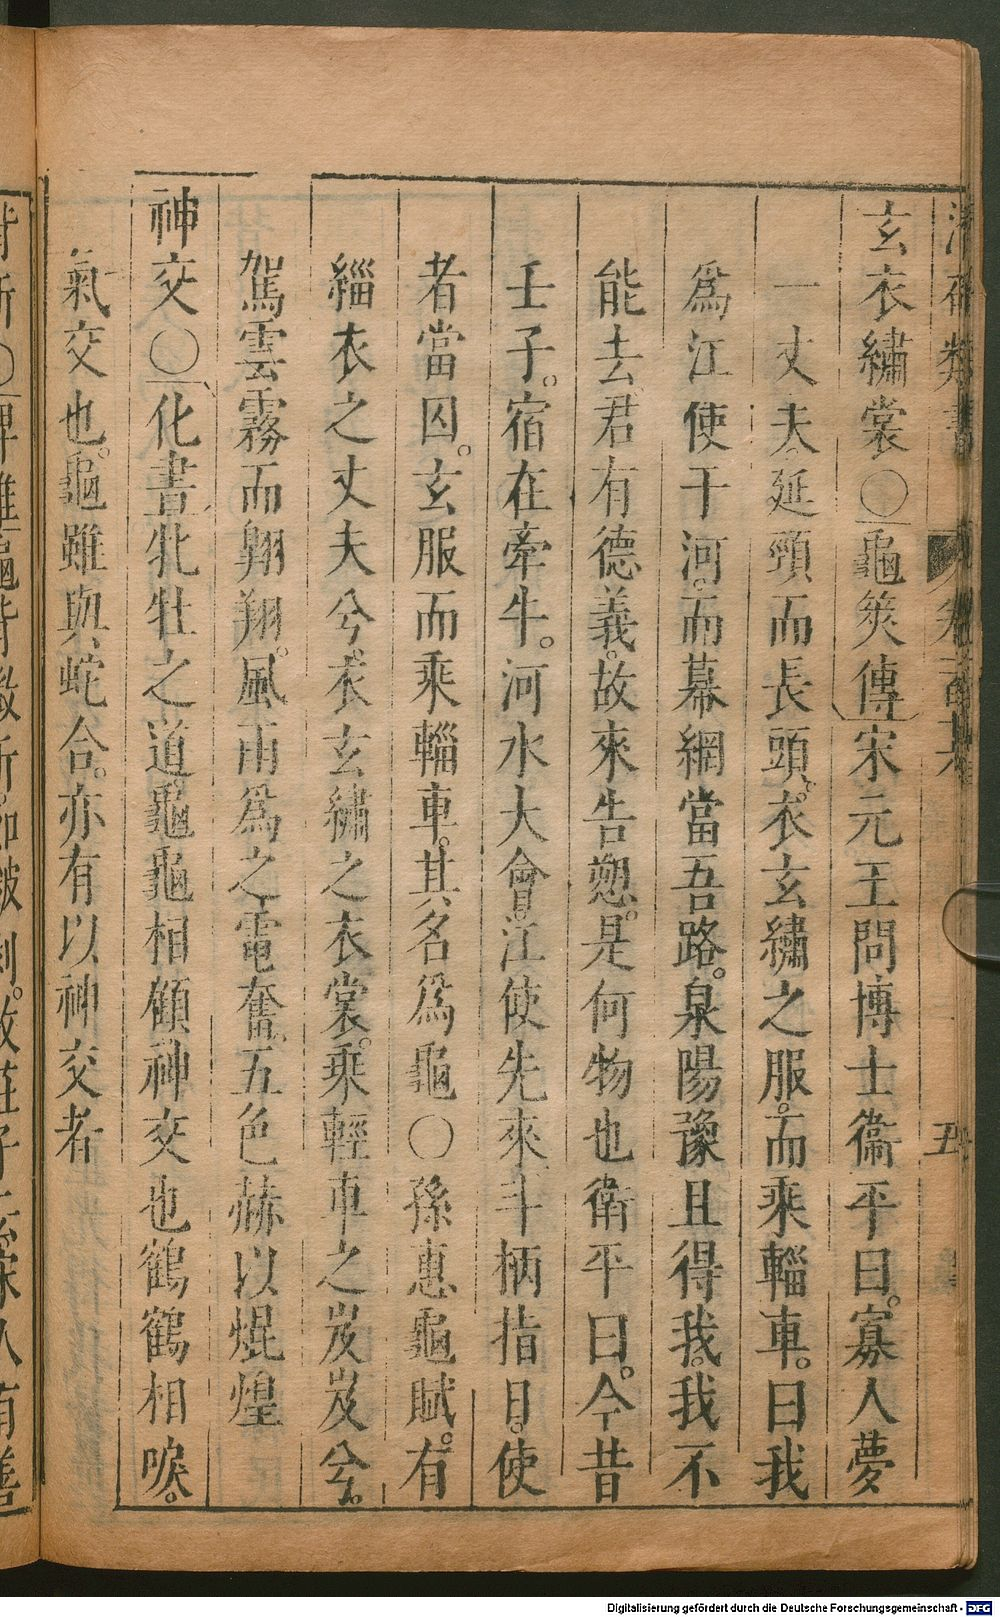 玄衣繡裳○龜筴傳宋元王問博士衞平曰。寡人夢
一丈夫。延頸而長頭。衣玄繡之服。而乘輜車。曰我
爲江使于河。而幕網當吾路。泉陽豫且得我。我不
能去。君有德義。故來告愬。是何物也衛平曰。今昔
壬子。宿在牽牛。河水大會。江使先來斗柄指日。使
者當囚。玄服而乘輜車。其名爲龜○孫惠龜賦。有
緇衣之丈夫兮。衣玄繡之衣裳。乘輕車之岌岌兮。
駕雲霧而翺翔。風雨爲之電奮。五色赫以焜煌
神交○化書牝牡之道龜龜相顧神交也鶴鶴相唳。
氣交也。龜雖與蛇合。亦有以神交者
Digitalisierung gefördert durch die Deutsche Forschungsgemeinschaft - DFG